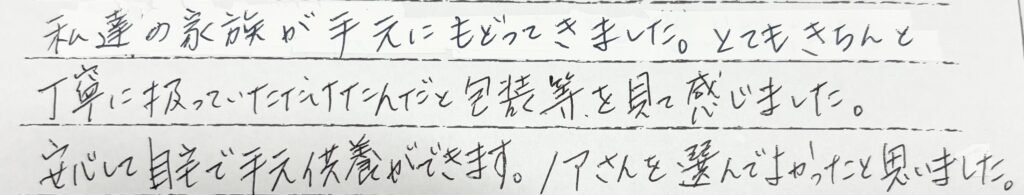 私達の家族が手元にもどってきました。とてもきちんと
丁寧に扱っていただけたんだと包装等を見て感じました。
安心して自宅で手元供養ができます。ノアさんを選んでよかったと思いました。